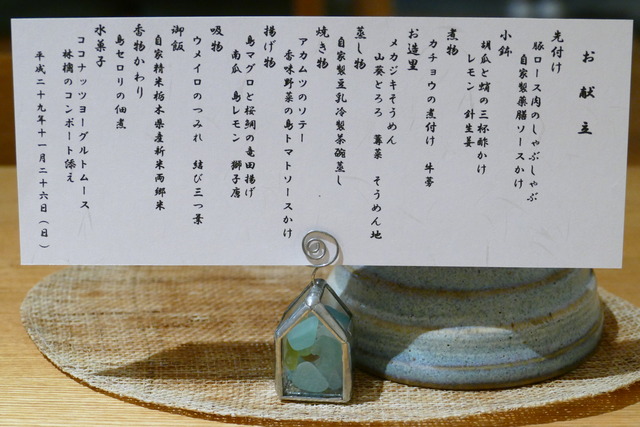 お献立
先付け
豚ロース肉のしゃぶしゃぶ
自家製薬膳ソースかけ
小鉢
胡瓜と蛸の三杯酢かけ
レモン 針生姜
煮物
カチョウの煮付け 牛蒡
お造里
メカジキそうめん
山葵とろろ 蓴菜 そうめん地
蒸し物
自家製豆乳冷製茶碗蒸し
焼き物
アカムツのソテー
香味野菜の島トマトソースかけ
揚げ物
島マグロと桜鯛の竜田揚げ
南瓜 島レモン 獅子唐
吸物
ウメイロのつみれ 結び三つ葉
御飯
自家精米栃木県産新米両郷米
香物かわり
島セロリの佃煮
水菓子
ココナッツヨーグルトムース
林檎のコンポート添え
平成二十九年十一月二十六日（日）